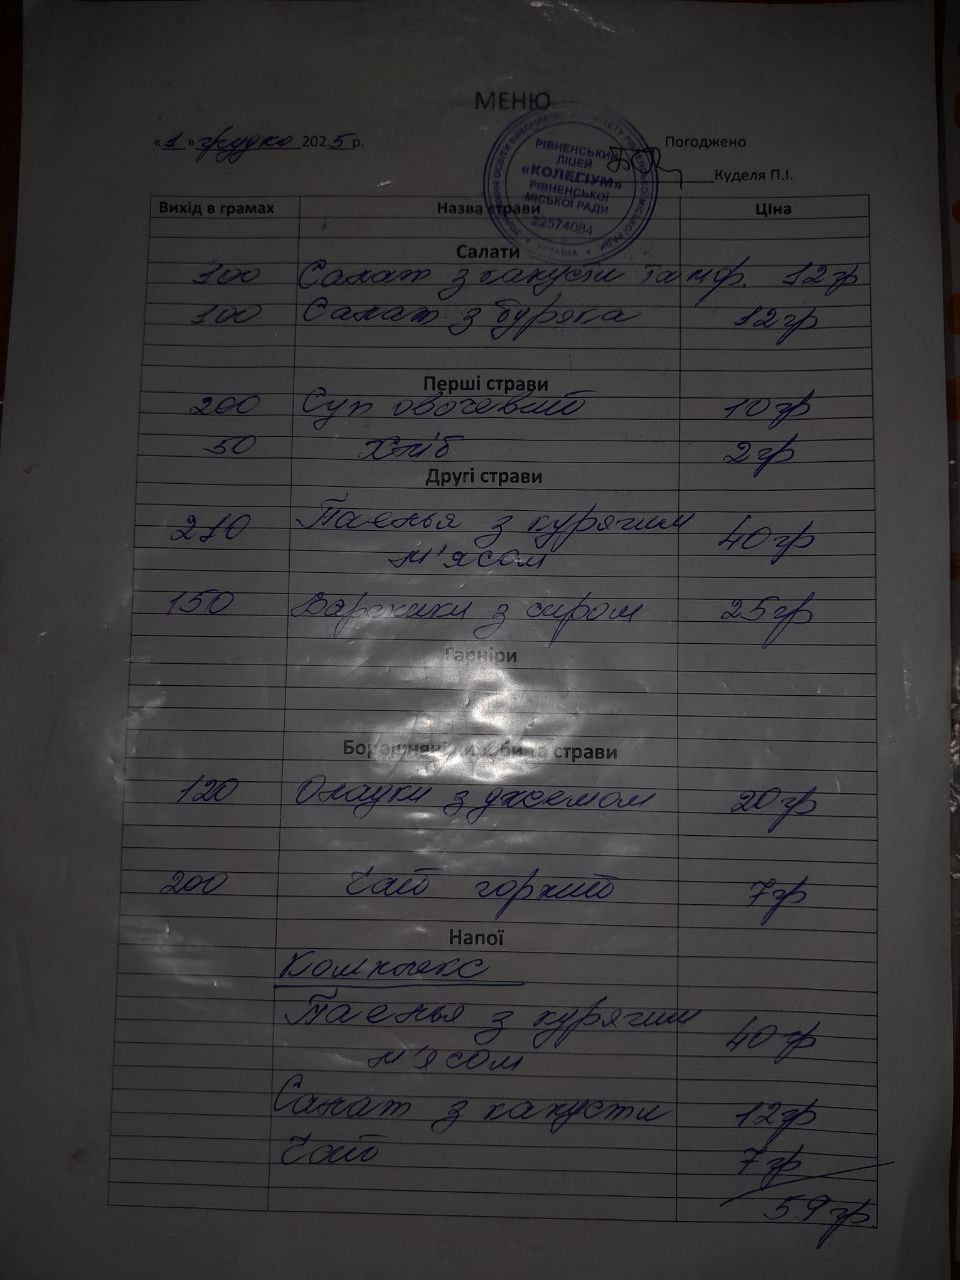 МЕНЮ
«1» грудня 2025 р.
Погоджено
Куделя П.І.
РІВНЕНСЬКИЙ
ЛІЦЕЙ
«КОЛЕГІУМ»
РІВНЕНСЬКОЇ
МІСЬКОЇ РАДИ
22574084
УКРАЇНА
Вихід в грамах Назва страви Ціна
Салати
100 Салат з капусти та мор. 12гр
100 Салат з буряка 12гр
Перші страви
200 Суп овочевий 10гр
50 Хліб 2гр
Другі страви
210 Паелья з курячим 40гр
м'ясом
150 Вареники з сиром 25гр
Гарніри
страви
120 Оладки з джемом 20гр
200 Чай горкий 7гр
Напої
Комплекс
Паелья з курячим 40гр
м'ясом
Салат з капусти 12гр
Чай 7гр
59гр